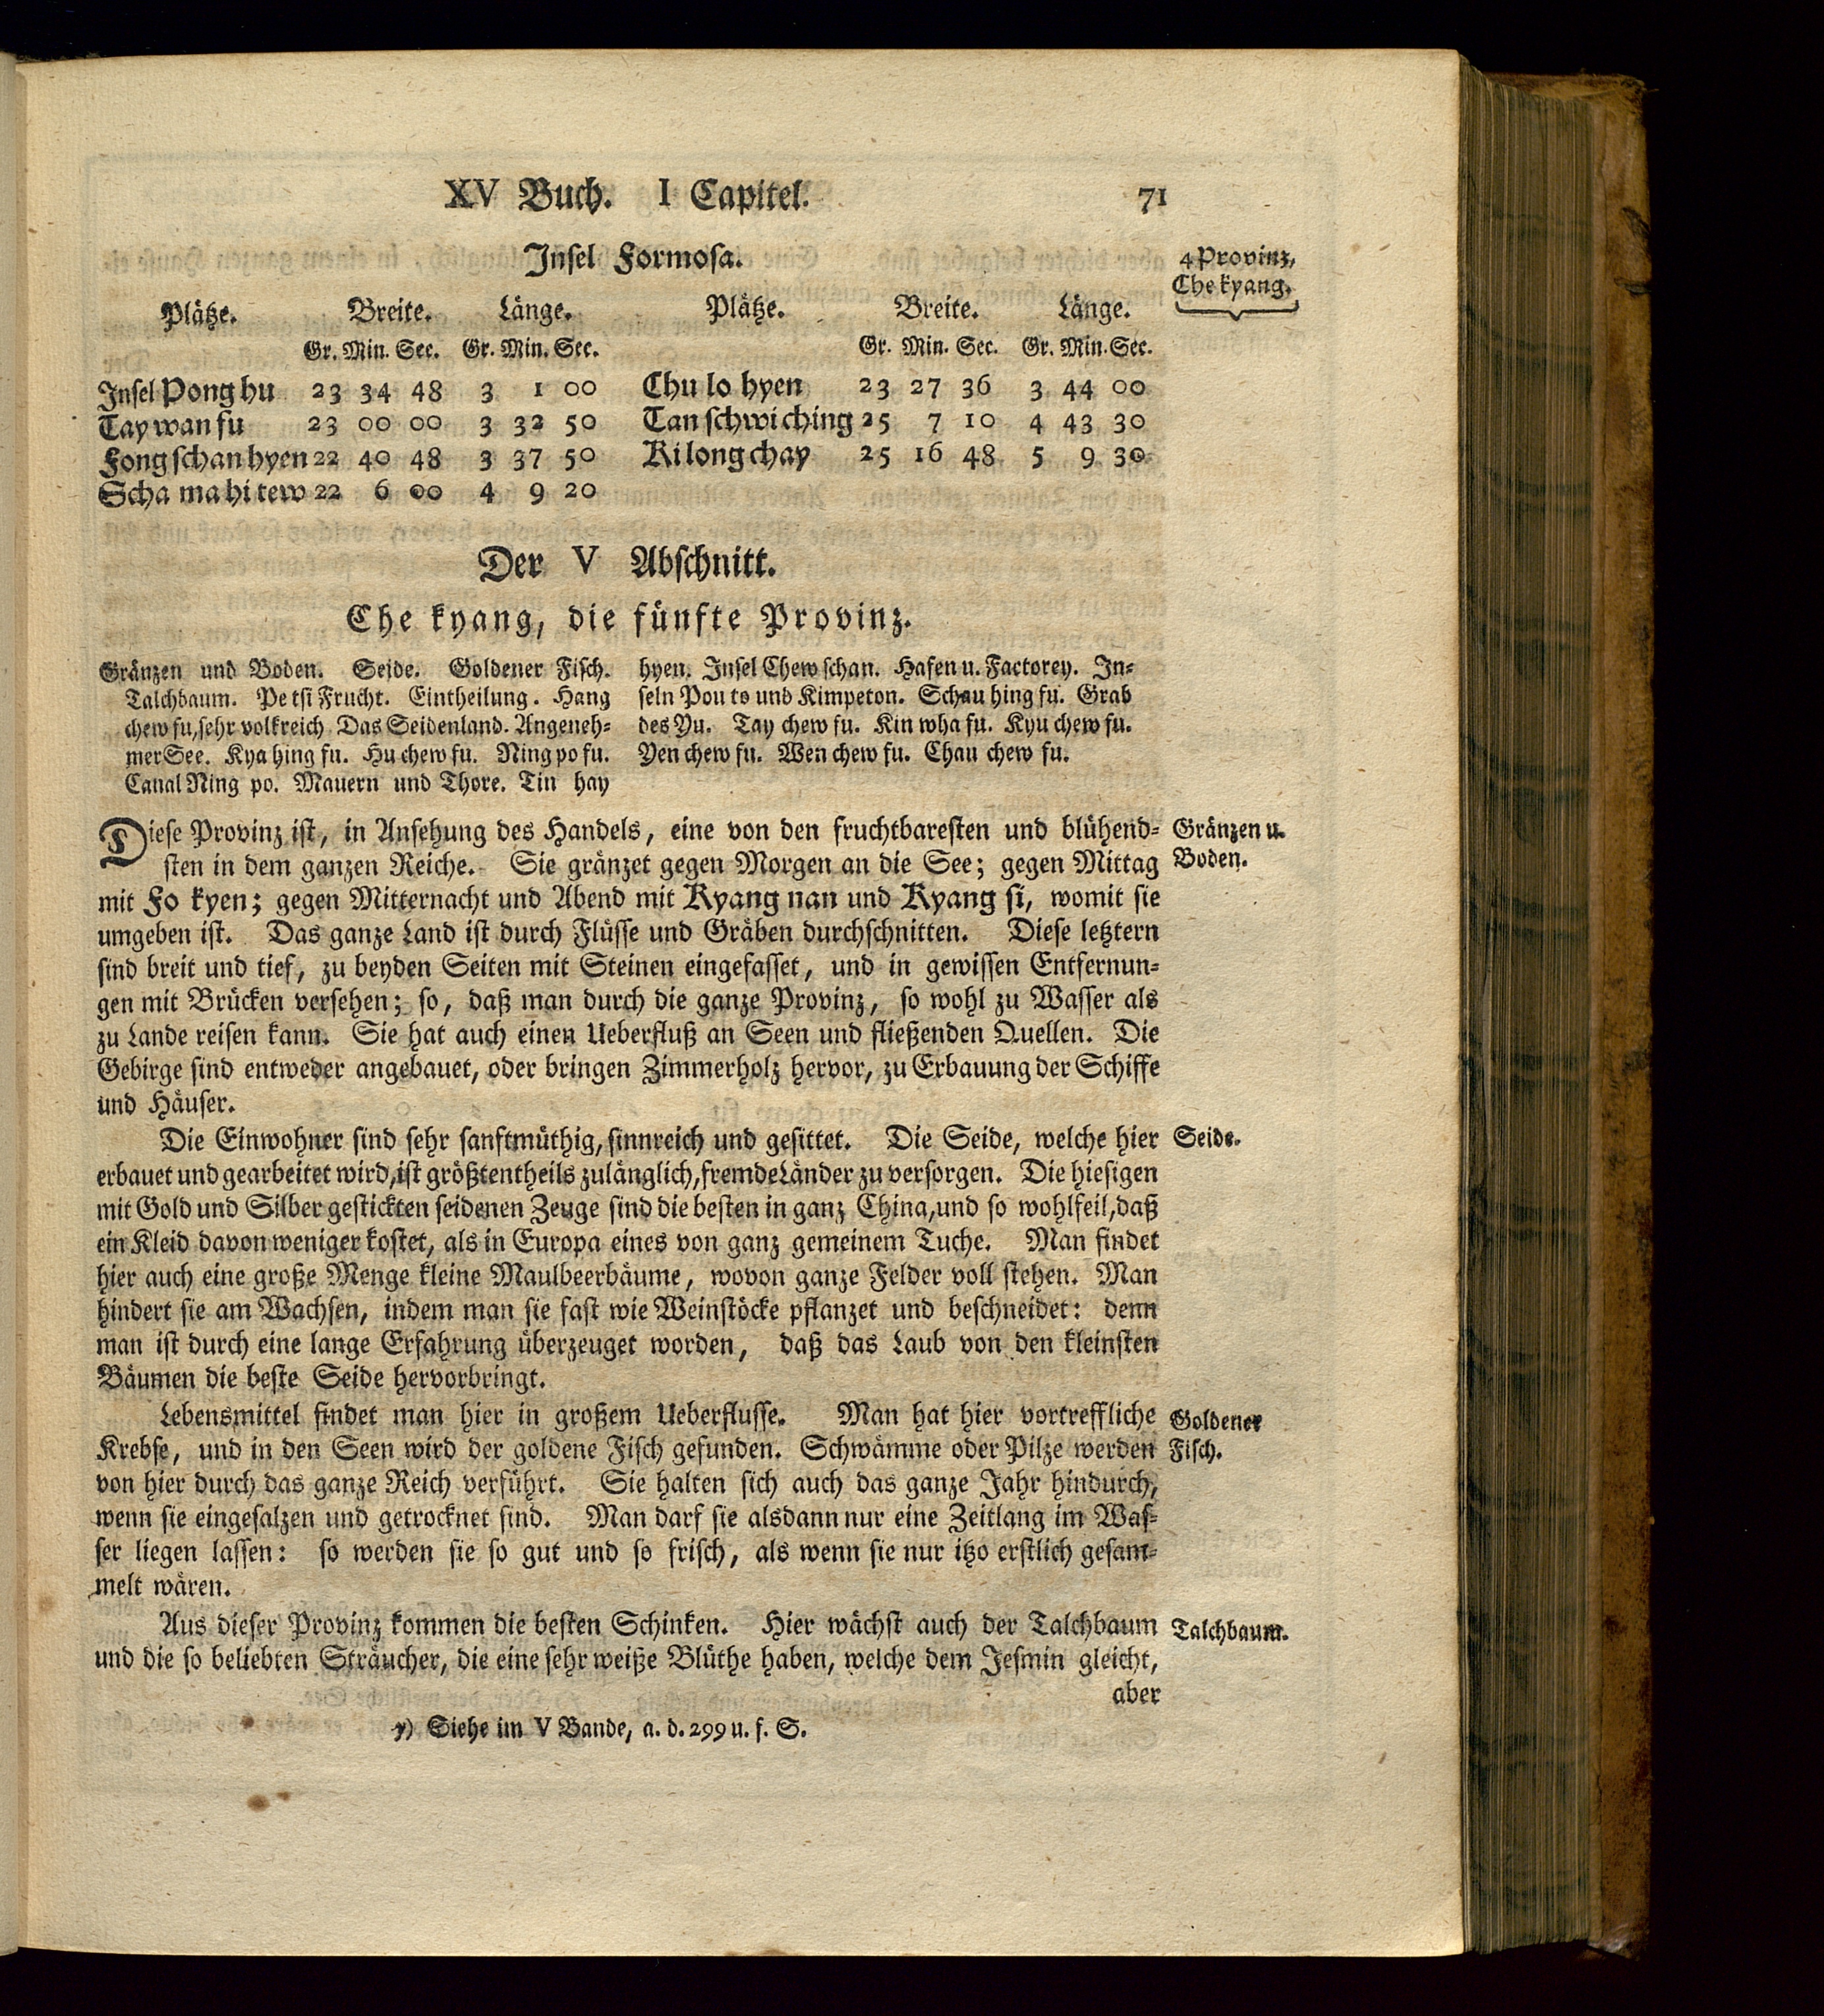 XV Buch. I Capitel. 71
4 Provinz,
Che kyang.
Insel Formosa.
Plätze. Breite. Länge. Plätze. Breite. Länge.
Gr. Min. Sec. Gr. Min. Sec. Gr. Min. Sec. Gr. Min. Sec.
Insel Pong hu 23 34 48 3 1 00 Chu lo hyen 23 27 36 3 44 00
Tay wan fu 23 00 00 3 32 50 Tan schwi ching 25 7 10 4 43 30
Fong schan hyen 22 40 48 3 37 50 Ki long chay 25 16 48 5 9 30
Scha ma hi tew 22 6 00 4 9 20
Der V Abschnitt.
Che kyang, die fünfte Provinz.
Gränzen und Boden. Seide. Goldener Fisch.
Talchbaum. Pe tsi Frucht. Eintheilung. Hang
chew fu, sehr volkreich Das Seidenland. Angeneh-
mer See. Kya hing fu. Hu chew fu. Ning po fu.
Canal Ning po. Mauern und Thore. Tin hay
hyen. Insel Chew schan. Hafen u. Factorey. In-
seln Pou to und Kimpeton. Schau hing fu. Grab
des Yu. Tay chew fu. Kin wha fu. Kyu chew fu.
Yen chew fu. Wen chew fu. Chau chew fu.
Diese Provinz ist, in Ansehung des Handels, eine von den fruchtbaresten und blühend-
sten in dem ganzen Reiche. Sie gränzet gegen Morgen an die See; gegen Mittag
mit Fo kyen; gegen Mitternacht und Abend mit Kyang nan und Kyang si, womit sie
umgeben ist. Das ganze Land ist durch Flüsse und Gräben durchschnitten. Diese letztern
sind breit und tief, zu beyden Seiten mit Steinen eingefasset, und in gewissen Entfernun-
gen mit Brücken versehen; so, daß man durch die ganze Provinz, so wohl zu Wasser als
zu Lande reisen kann. Sie hat auch einen Ueberfluß an Seen und fließenden Quellen. Die
Gebirge sind entweder angebauet, oder bringen Zimmerholz hervor, zu Erbauung der Schiffe
und Häuser.
Gränzen u.
Boden.
Die Einwohner sind sehr sanftmüthig, sinnreich und gesittet. Die Seide, welche hier
erbauet und gearbeitet wird, ist größtentheils zulänglich, fremde Länder zu versorgen. Die hiesigen
mit Gold und Silber gestickten seidenen Zeuge sind die besten in ganz China, und so wohlfeil, daß
ein Kleid davon weniger kostet, als in Europa eines von ganz gemeinem Tuche. Man findet
hier auch eine große Menge kleine Maulbeerbäume, wovon ganze Felder voll stehen. Man
hindert sie am Wachsen, indem man sie fast wie Weinstöcke pflanzet und beschneidet: denn
man ist durch eine lange Erfahrung überzeuget worden, daß das Laub von den kleinsten
Bäumen die beste Seide hervorbringt.
Seide.
Lebensmittel findet man hier in großem Ueberflusse. Man hat hier vortreffliche
Krebse, und in den Seen wird der goldene Fisch gefunden. Schwämme oder Pilze werden
von hier durch das ganze Reich verführt. Sie halten sich auch das ganze Jahr hindurch,
wenn sie eingesalzen und getrocknet sind. Man darf sie alsdann nur eine Zeitlang im Was-
ser liegen lassen: so werden sie so gut und so frisch, als wenn sie nur itzo erstlich gesam-
melt wären.
Goldener
Fisch.
Aus dieser Provinz kommen die besten Schinken. Hier wächst auch der Talchbaum
und die so beliebten Sträucher, die eine sehr weiße Blüthe haben, welche dem Jesmin gleicht,
aber
Talchbaum.
y) Siehe im V Bande, a. d. 299 u. f. S.